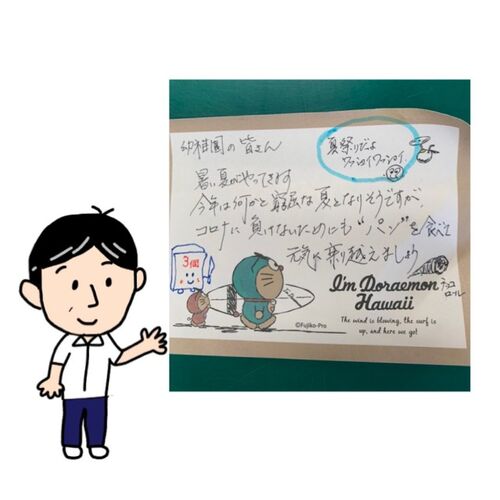 幼稚園の皆さん
夏祭りだよ
ワッショイワッショイ
暑い夏がやってきます
今年は何かと窮屈な夏となりそうですが、
コロナに負けないためにも“パン”を食べて
元気に乗り越えましょう
3個
チョコ
ロール
I'm Doraemon
Hawaii
©Fujiko-Pro
The wind is blowing, the surf is
up, and here we go!